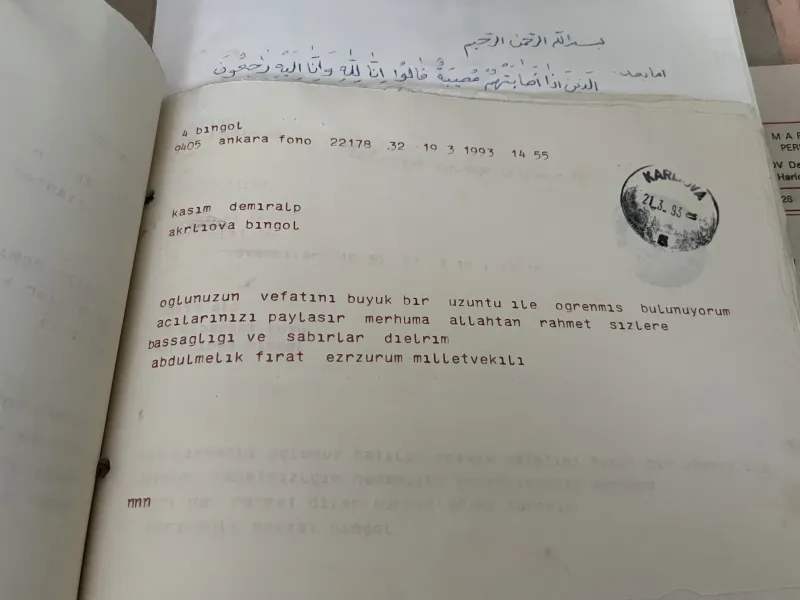 بسم الله الرحمن الرحيم
اما بعد
الَّذينَ اِذَا اَصَابَتْهُمْ مُصيبَةٌ قَالُوا اِنَّا لِلّٰهِ وَاِنَّا اِلَيْهِ رَاجِعُونَ
4 bıngol
9405 ankara fono 22178 32 19 3 1993 14 55
KARLIOVA
kasım demıralp
akrlıova bıngol
oglunuzun vefatını buyuk bır uzuntu ıle ogrenmıs bulunuyorum
acılarınızı paylasır merhuma allahtan rahmet sızlere
bassaglıgı ve sabırlar dıelrım
abdulmelık fırat ezrzurum mılletvekılı
nnn